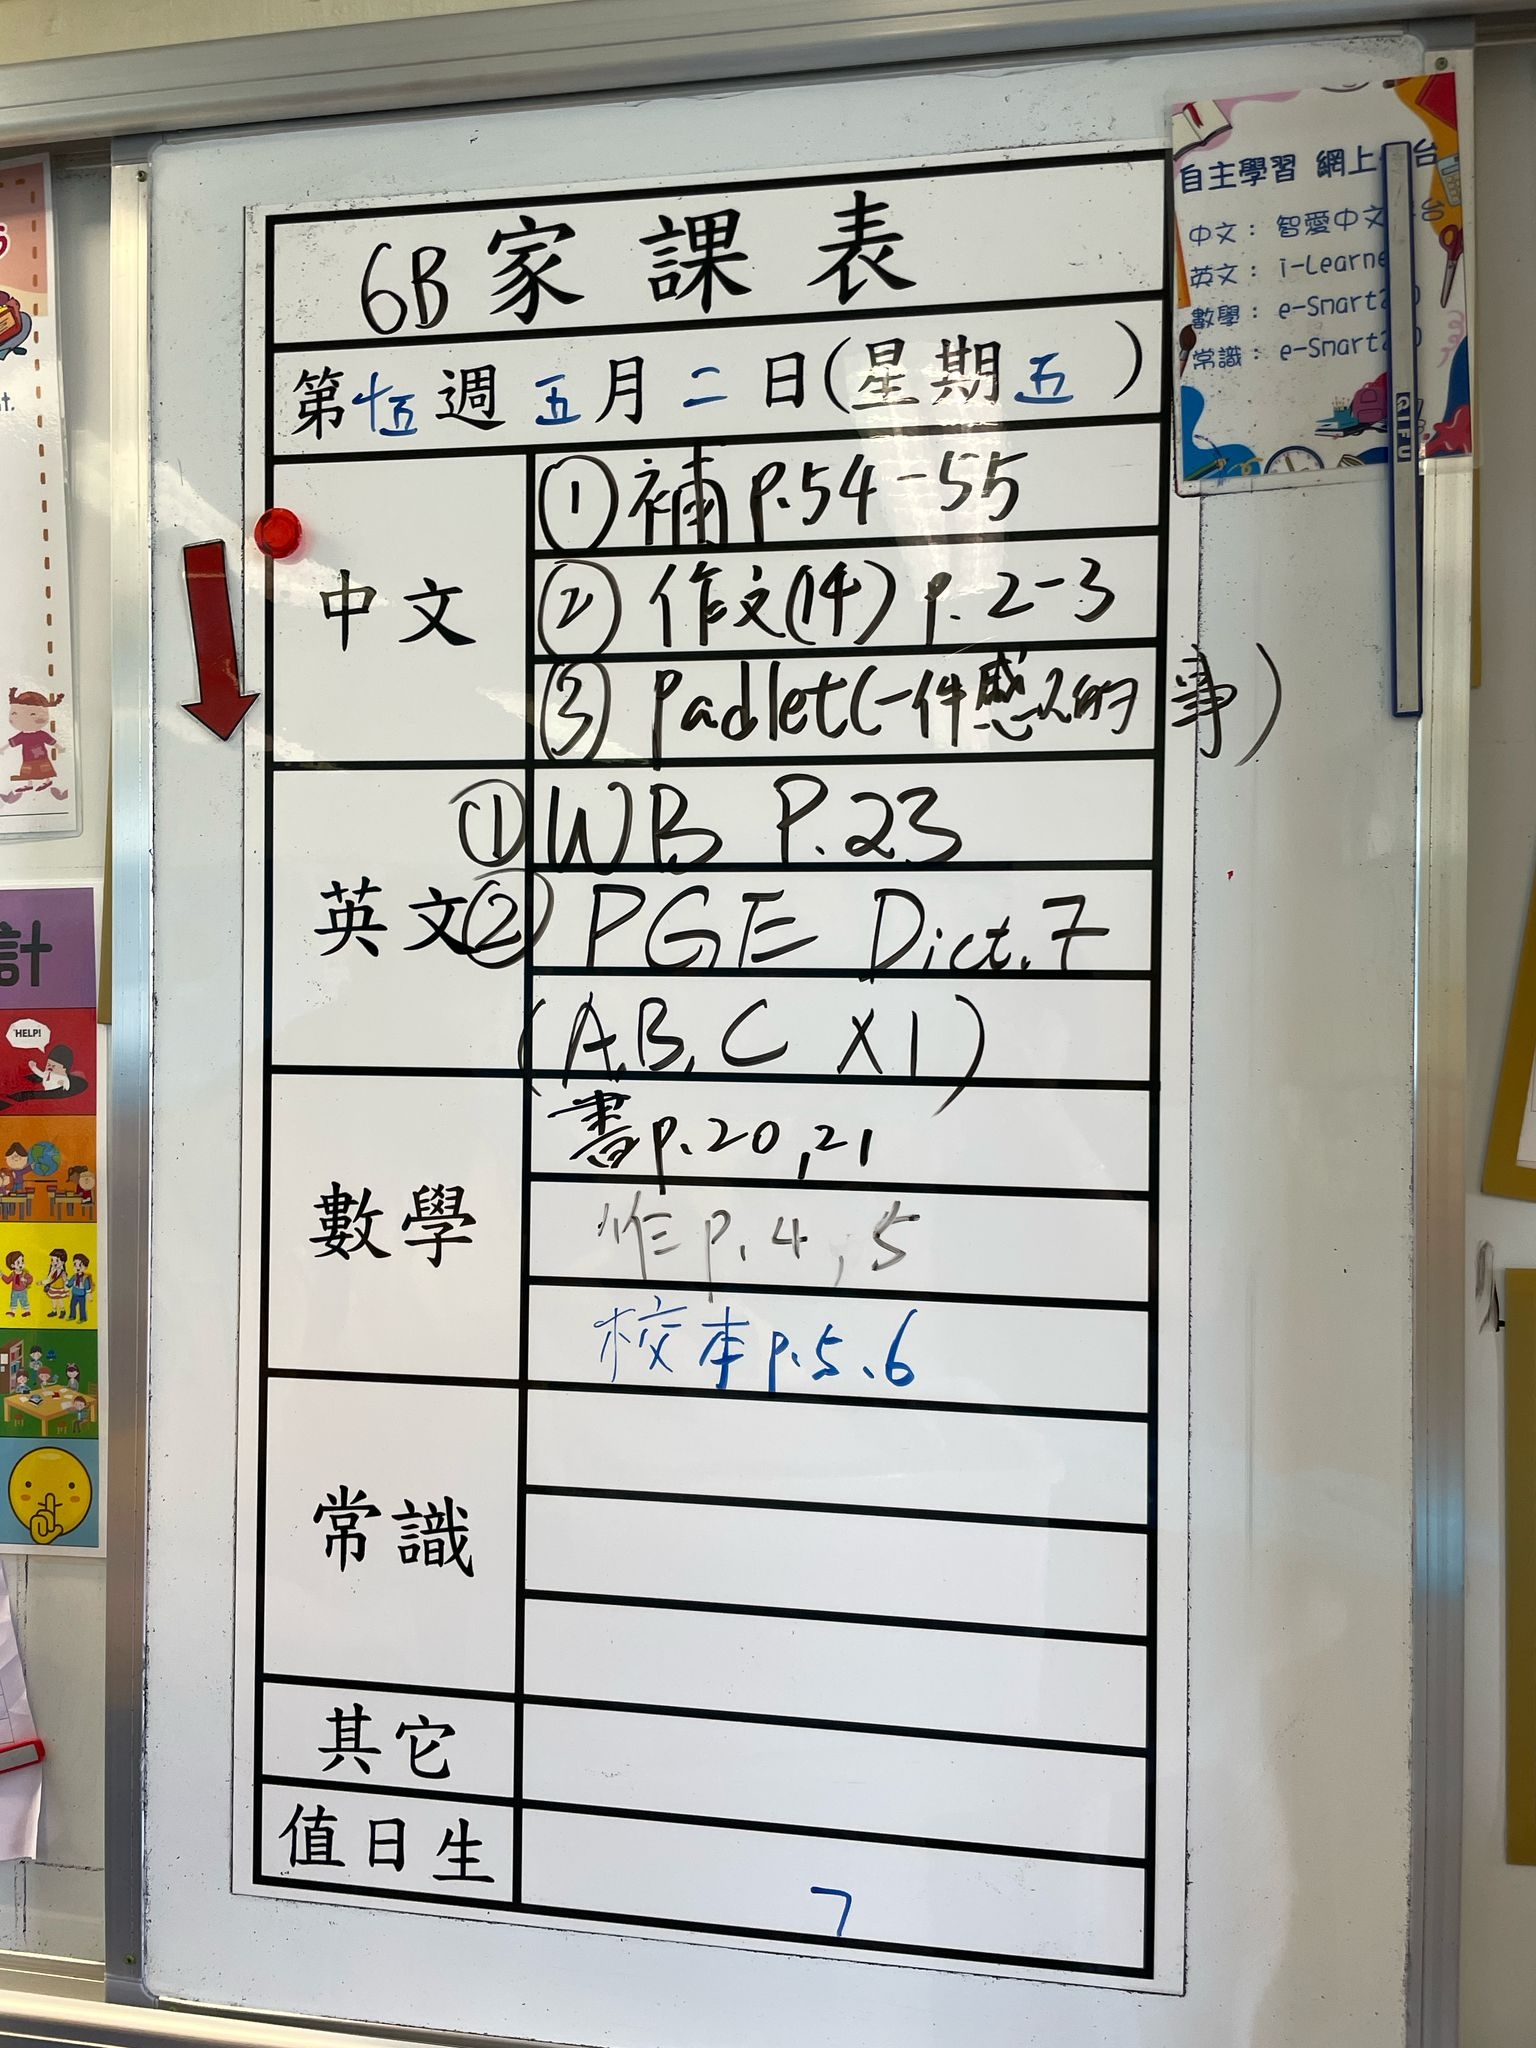 6B家課表
第十五週五月二日(星期五)
中文
①補p.54-55
②作文(14) p.2-3
③Padlet(一件感人的事)
英文
①WB P.23
②PGE Dict.7
(A,B,C X1)
數學
書p.20,21
作p.4,5
校本p.5、6
常識
其它
值日生
7
自主學習 網上 台
中文: 智愛中文 台
英文: i-Learne
數學: e-Smart
常識: e-Smart
QIFU
計
HELP!